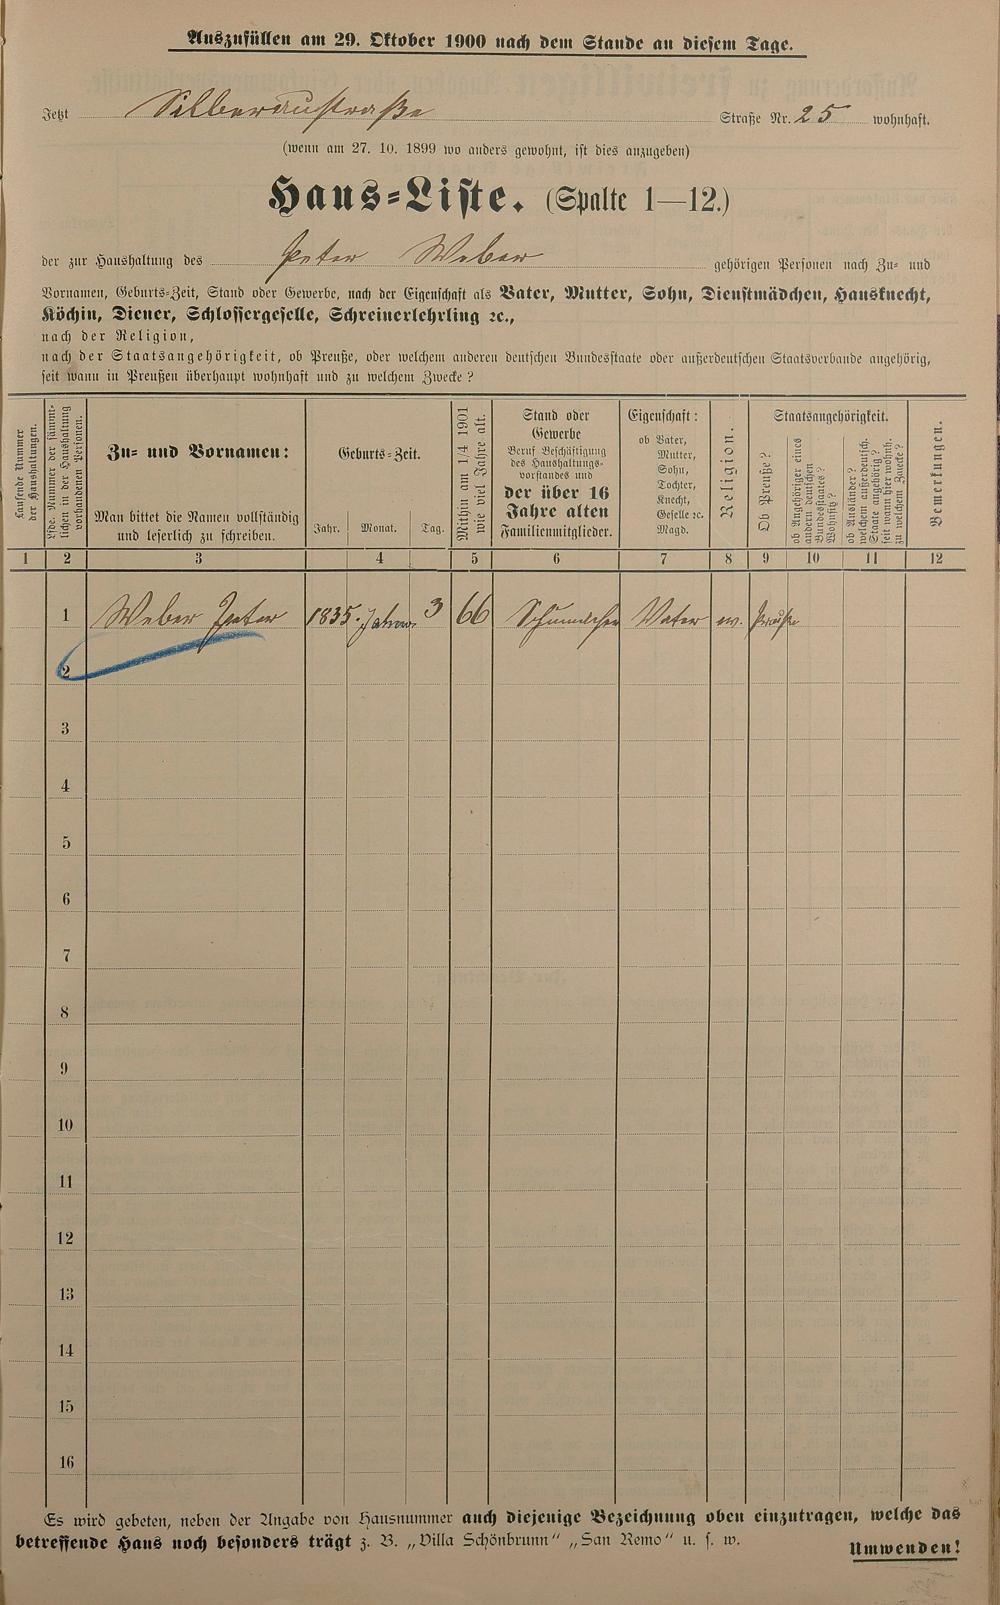 Auszufüllen am 29. Oktober 1900 nach dem Stande an diesem Tage.
Jetzt Silberaustraße Straße Nr. 25 wohnhaft.
(wenn am 27. 10. 1899 wo anders gewohnt, ist dies anzugeben)
Haus=Liste. (Spalte 1—12.)
der zur Haushaltung des Peter Weber gehörigen Personen nach Zu= und
Vornamen, Geburts=Zeit, Stand oder Gewerbe, nach der Eigenschaft als Vater, Mutter, Sohn, Dienstmädchen, Hausknecht,
Köchin, Diener, Schlossergeselle, Schreinerlehrling ꝛc.,
nach der Religion,
nach der Staatsangehörigkeit, ob Preuße, oder welchem anderen deutschen Bundesstaate oder außerdeutschen Staatsverbande angehörig,
seit wann in Preußen überhaupt wohnhaft und zu welchem Zwecke?
Laufende Nummer
der Haushaltungen.
Lfde. Nummer der sämmt-
lichen in der Haushaltung
vorhandenen Personen.
Zu= und Vornamen:
Man bittet die Namen vollständig
und leserlich zu schreiben.
Geburts=Zeit.
Jahr. Monat. Tag.
Mithin am 1/4 1901
wie viel Jahre alt.
Stand oder
Gewerbe
Beruf Beschäftigung
des Haushaltungs-
vorstandes und
der über 16
Jahre alten
Familienmitglieder.
Eigenschaft:
ob Vater,
Mutter,
Sohn,
Tochter,
Knecht,
Geselle ꝛc.
Magd.
Religion.
Staatsangehörigkeit.
Ob Preuße?
ob Angehöriger eines
andern deutschen
Bundesstaates?
Wohnsitz?
ob Ausländer?
welchem außerdeutsch.
Staate angehörig?
seit wann hier wohnh.
zu welchem Zwecke?
Bemerkungen.
1 2 3 4 5 6 7 8 9 10 11 12
1 Weber Peter 1835. 3 66 Vater ev. Preuße
2
3
4
5
6
7
8
9
10
11
12
13
14
15
16
Es wird gebeten, neben der Angabe von Hausnummer auch diejenige Bezeichnung oben einzutragen, welche das
betreffende Haus noch besonders trägt z. B. „Villa Schönbrunn“ „San Remo“ u. s. w.
Umwenden!